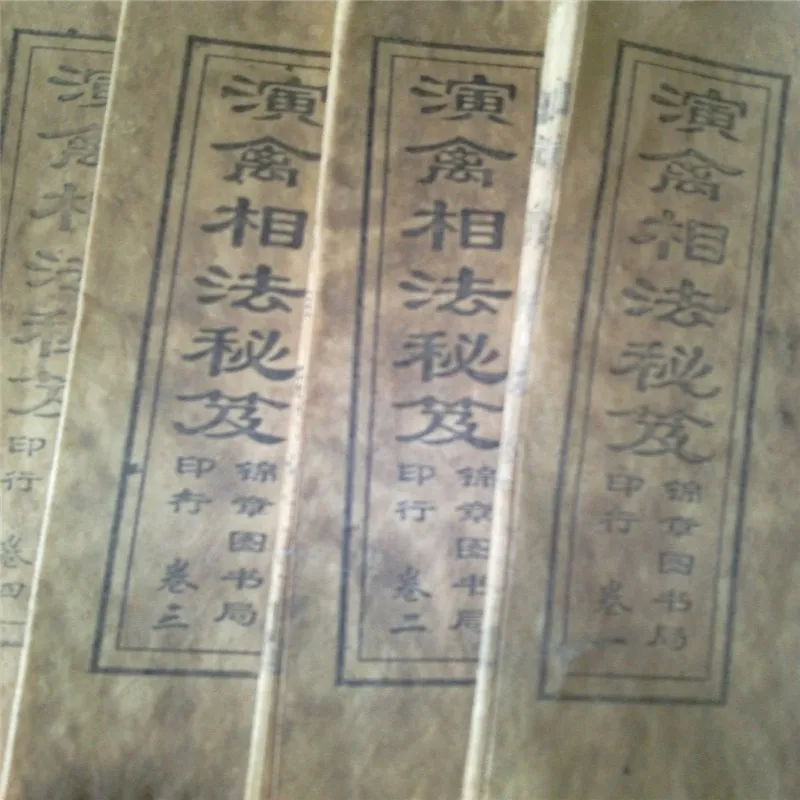 演禽相法秘笈
锦章图书局
印行
卷一
演禽相法秘笈
锦章图书局
印行
卷二
演禽相法秘笈
锦章图书局
印行
卷三
演禽相法秘笈
印行
卷四